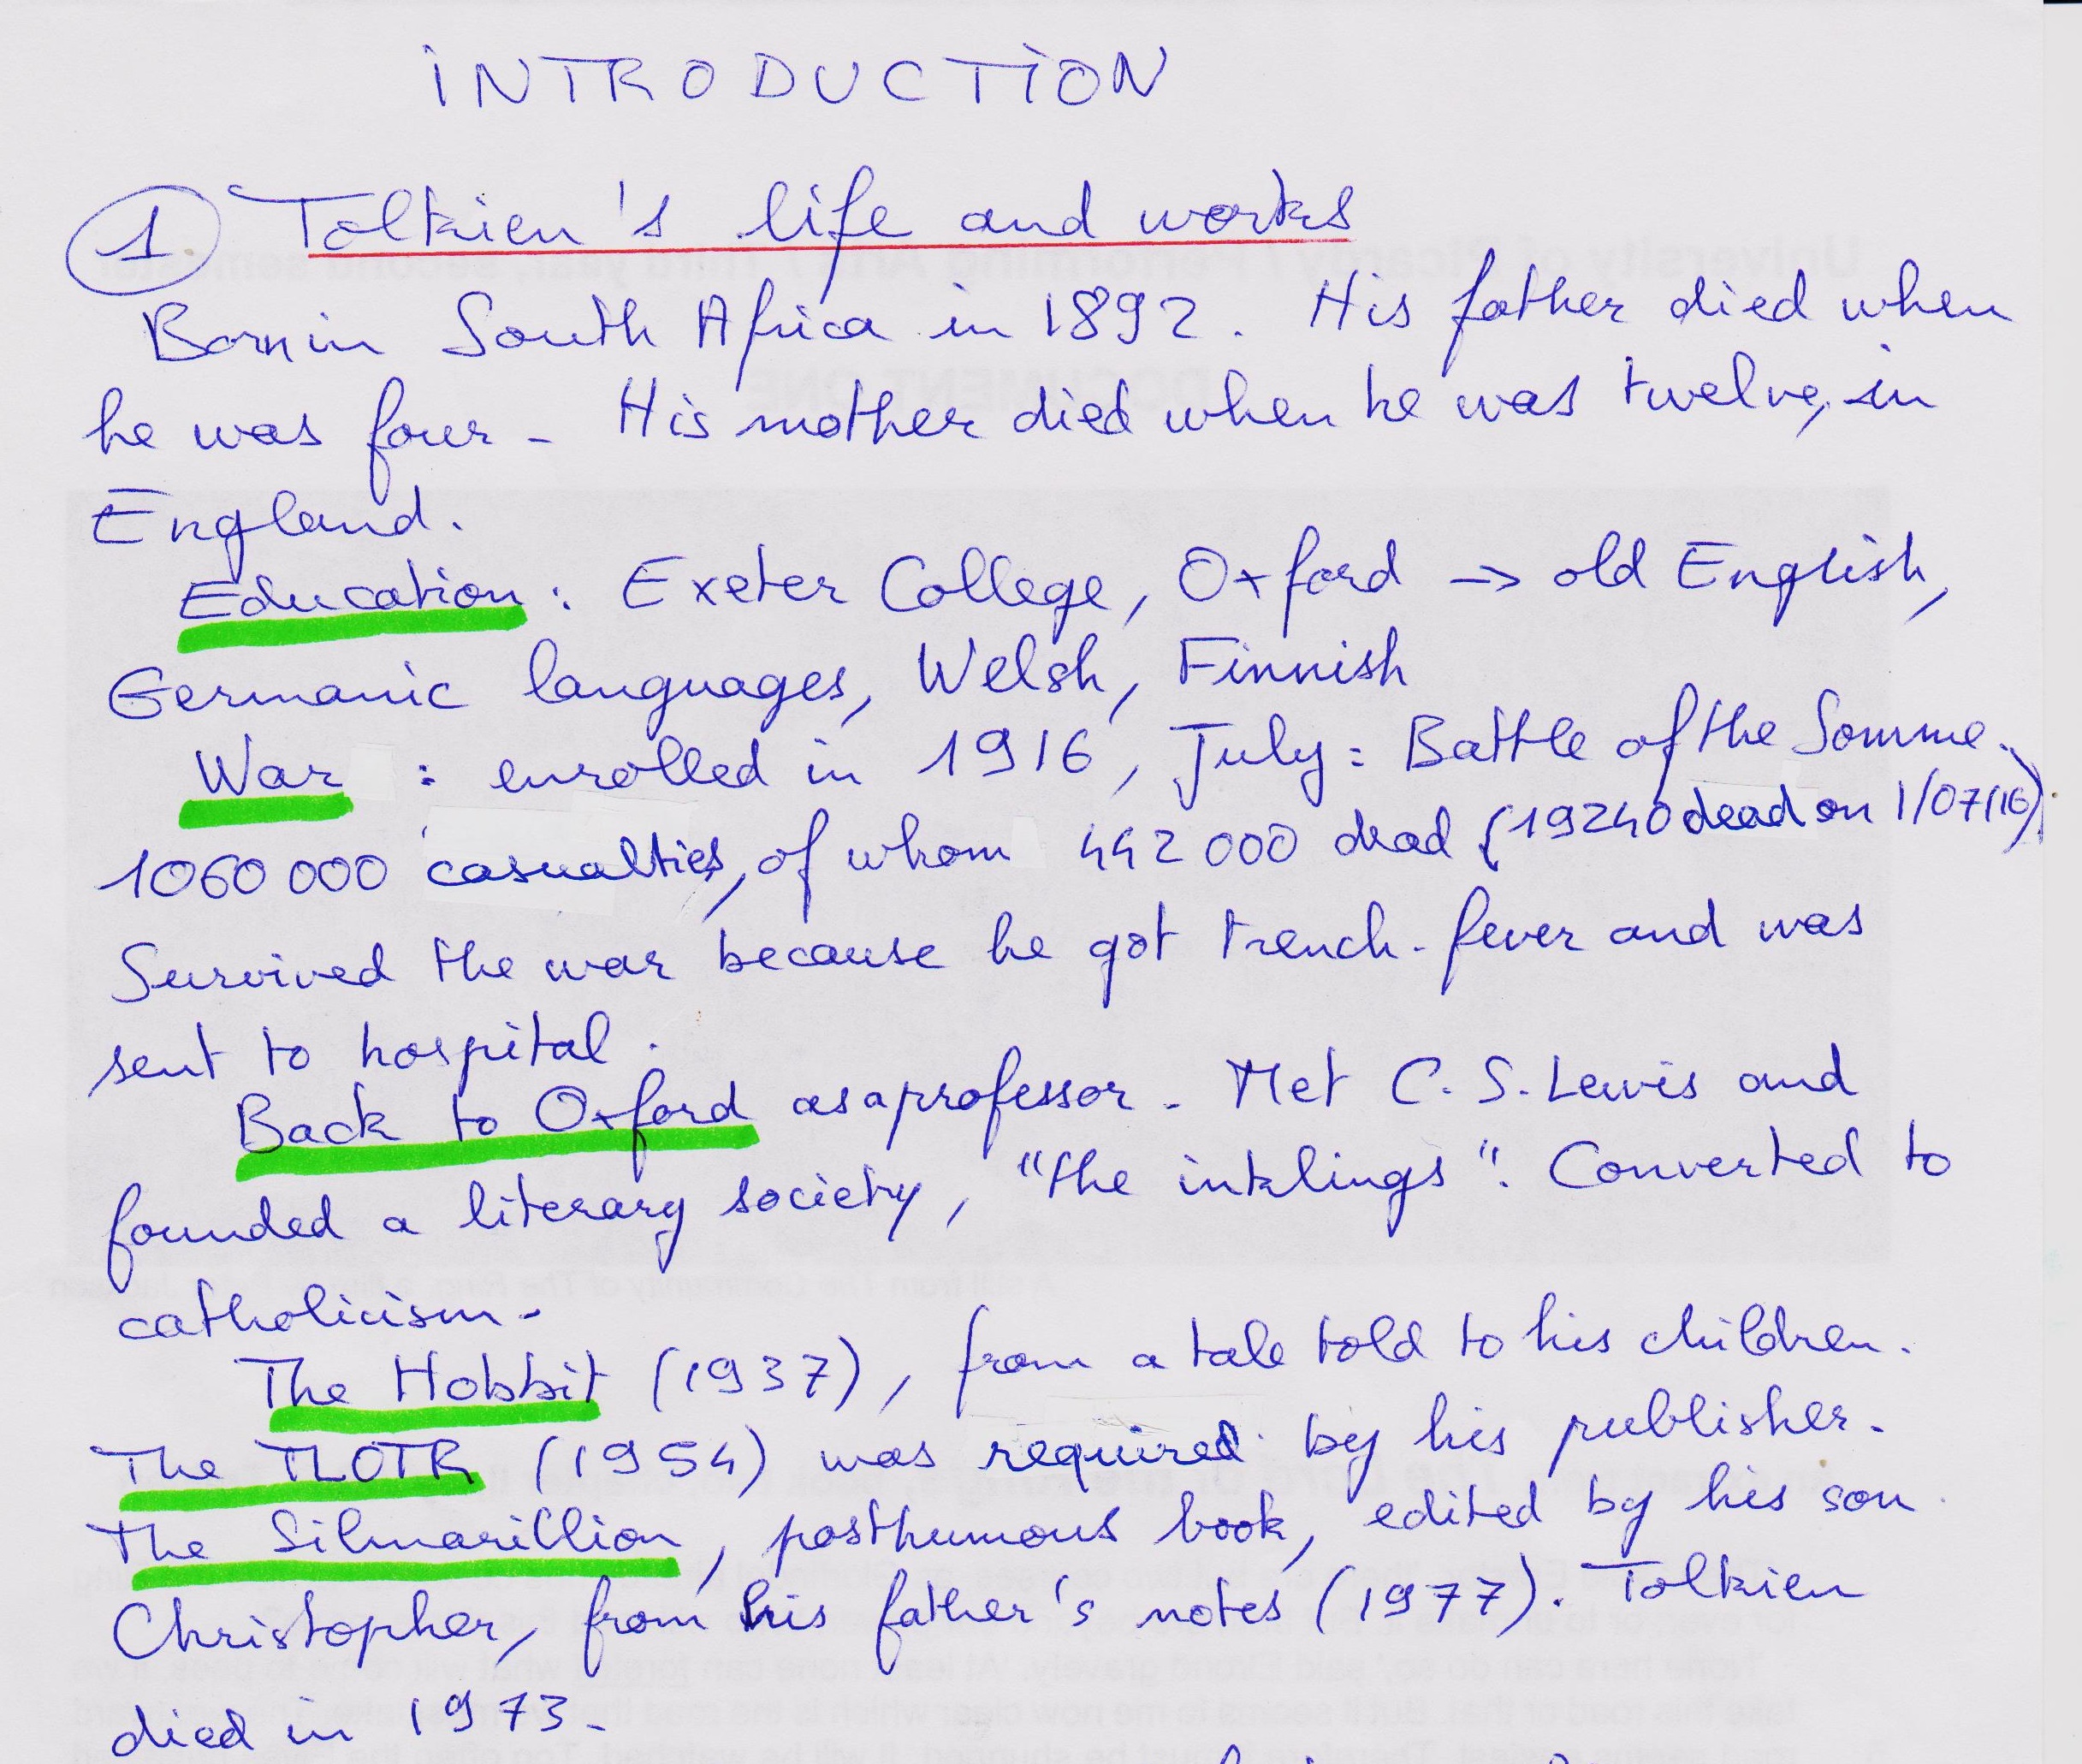 INTRODUCTION
1 Tolkien's life and works
Born in South Africa in 1892. His father died when
he was four - His mother died when he was twelve, in
England.
Education : Exeter College, Oxford → old English,
Germanic languages, Welsh, Finnish
War : enrolled in 1916, July : Battle of the Somme.
1060 000 casualties, of whom 442 000 dead (19240 dead on 1/07/16).
Survived the war because he got trench-fever and was
sent to hospital.
Back to Oxford as a professor - Met C. S. Lewis and
founded a literary society, "the inklings". Converted to
catholicism -
The Hobbit (1937), from a tale told to his children.
The TLOTR (1954) was required by his publisher -
The Silmarillion, posthumous book, edited by his son
Christopher, from his father's notes (1977). Tolkien
died in 1973 -